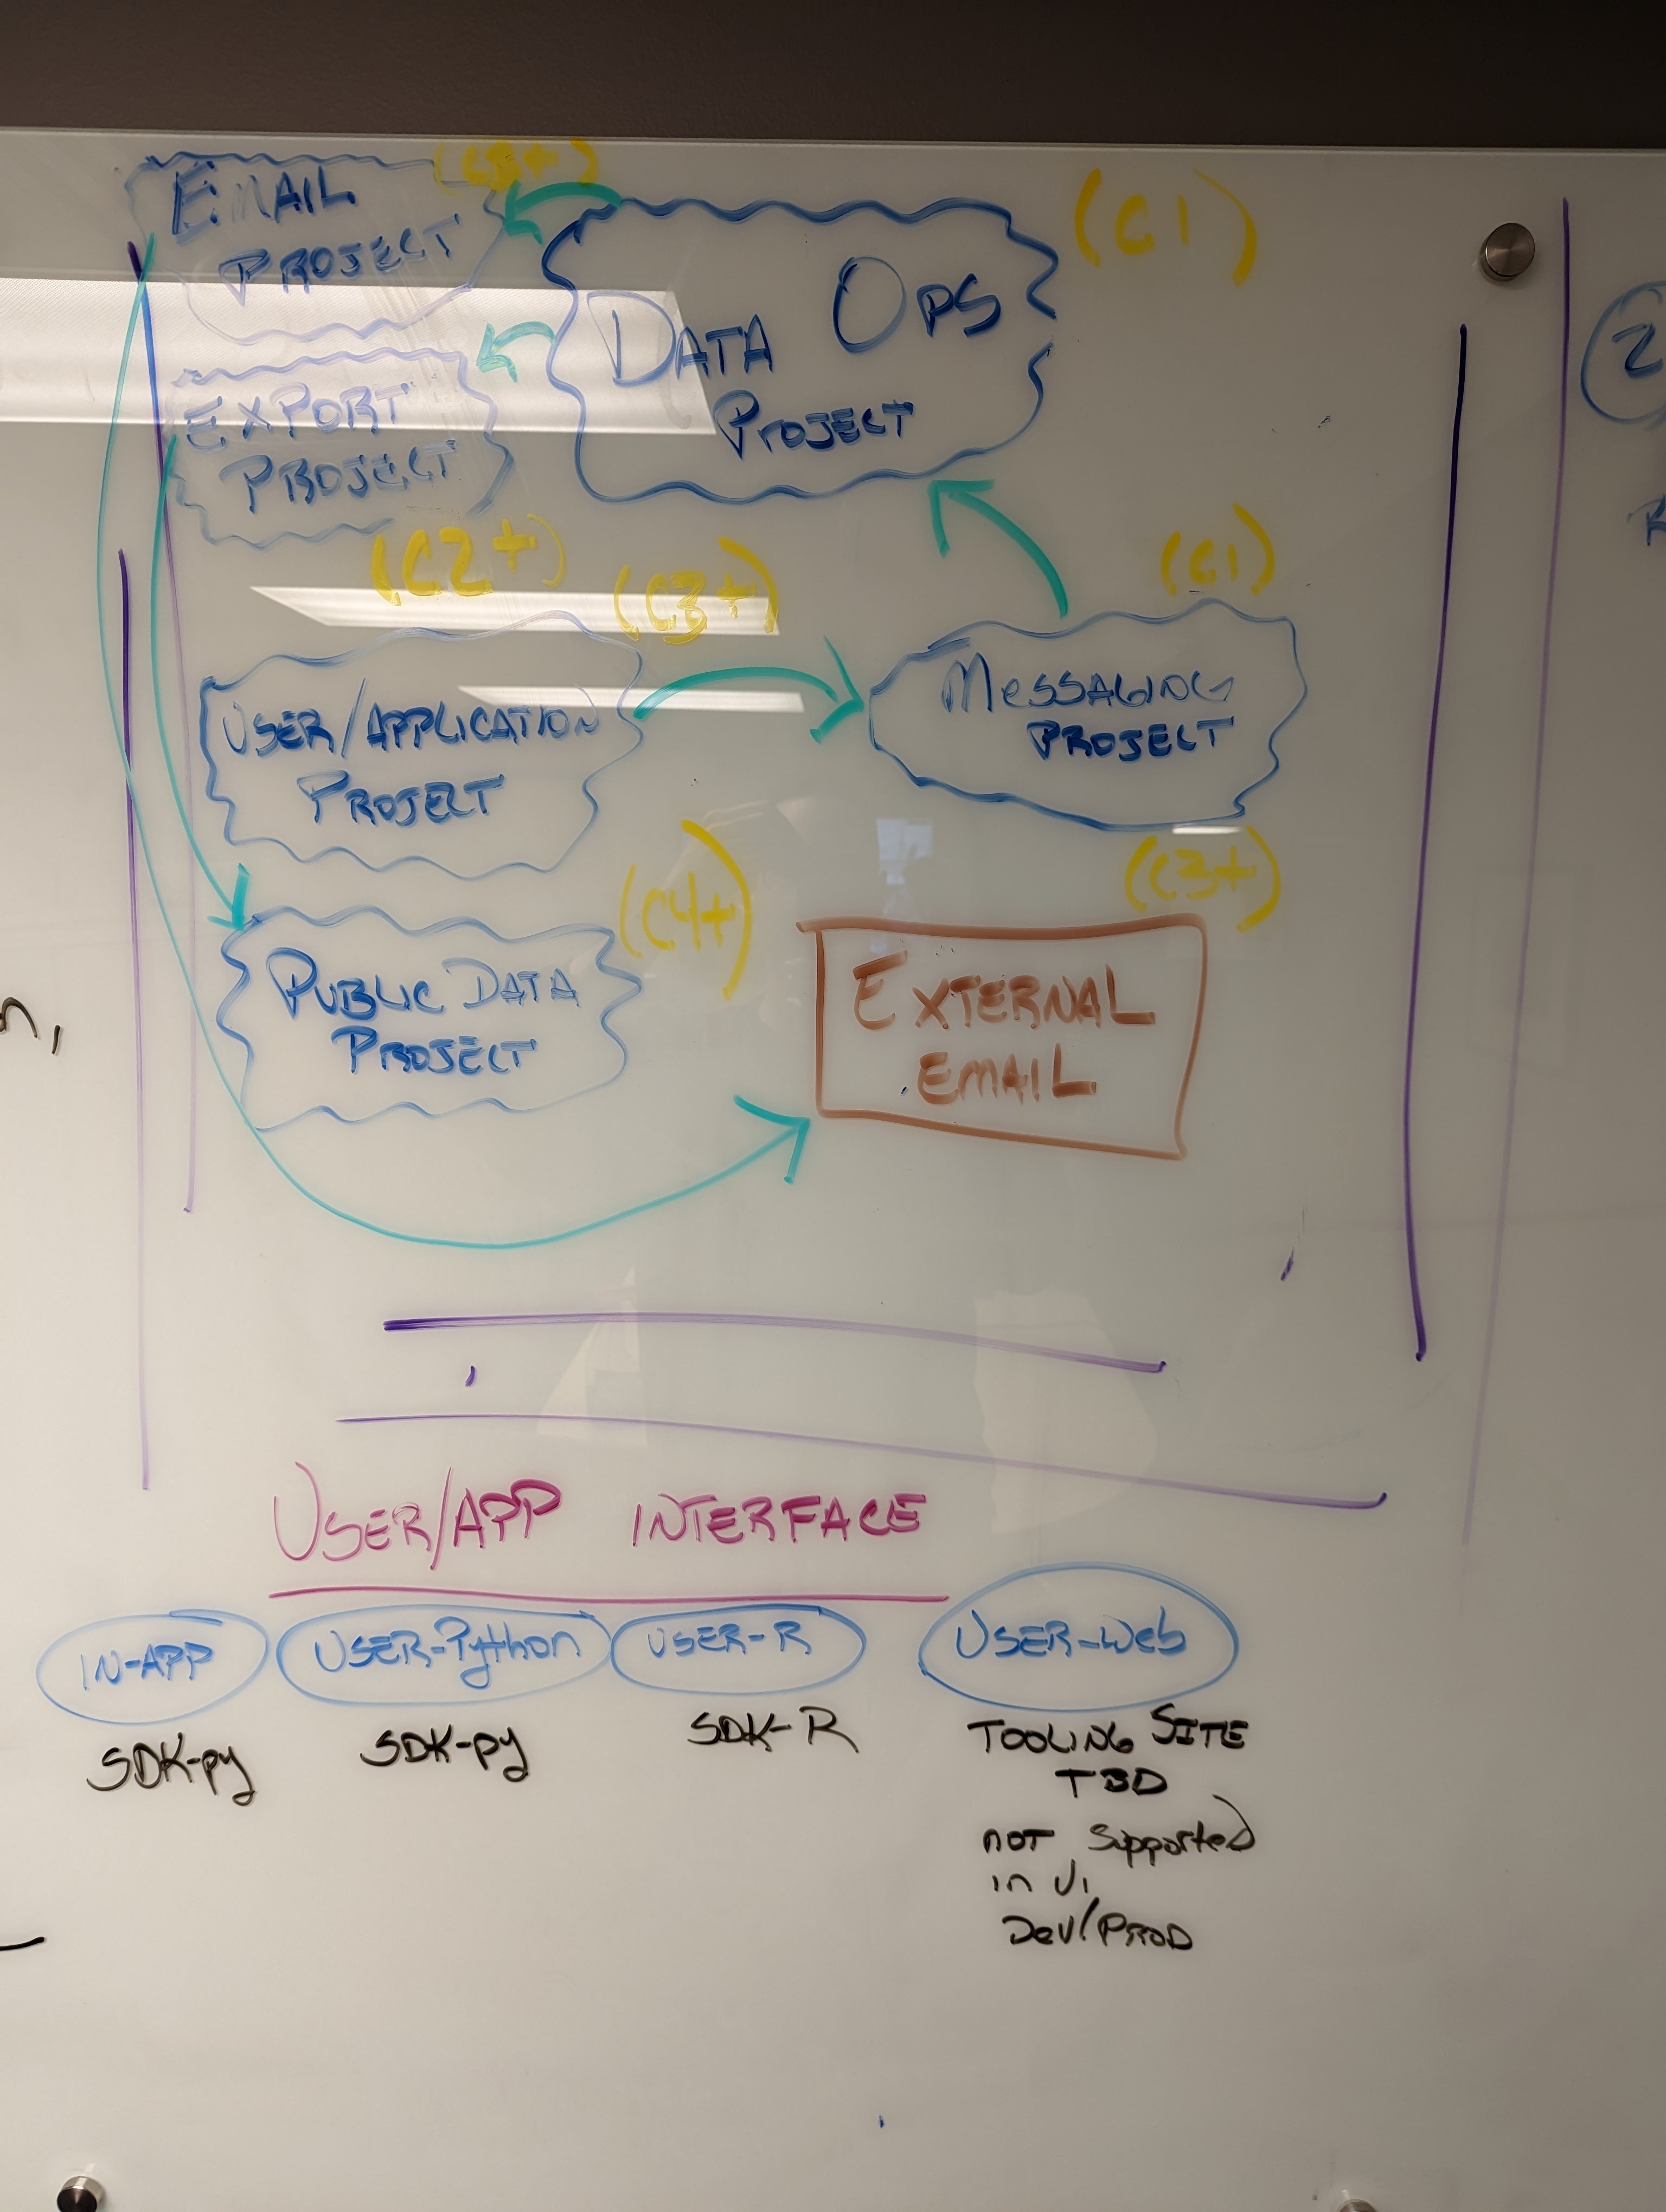 EMAIL
PROJECT
(C1)
DATA OPS
PROJECT
EXPORT
PROJECT
(C2+)
(C3+)
(C1)
USER/APPLICATION
PROJECT
MESSAGING
PROJECT
(C4+)
(C3+)
PUBLIC DATA
PROJECT
EXTERNAL
EMAIL
USER/APP INTERFACE
IN-APP
SDK-py
USER-Python
SDK-py
USER-R
SDK-R
USER-Web
TOOLING SITE
TBD
not supported
in v1
Dev/PROD
2
R